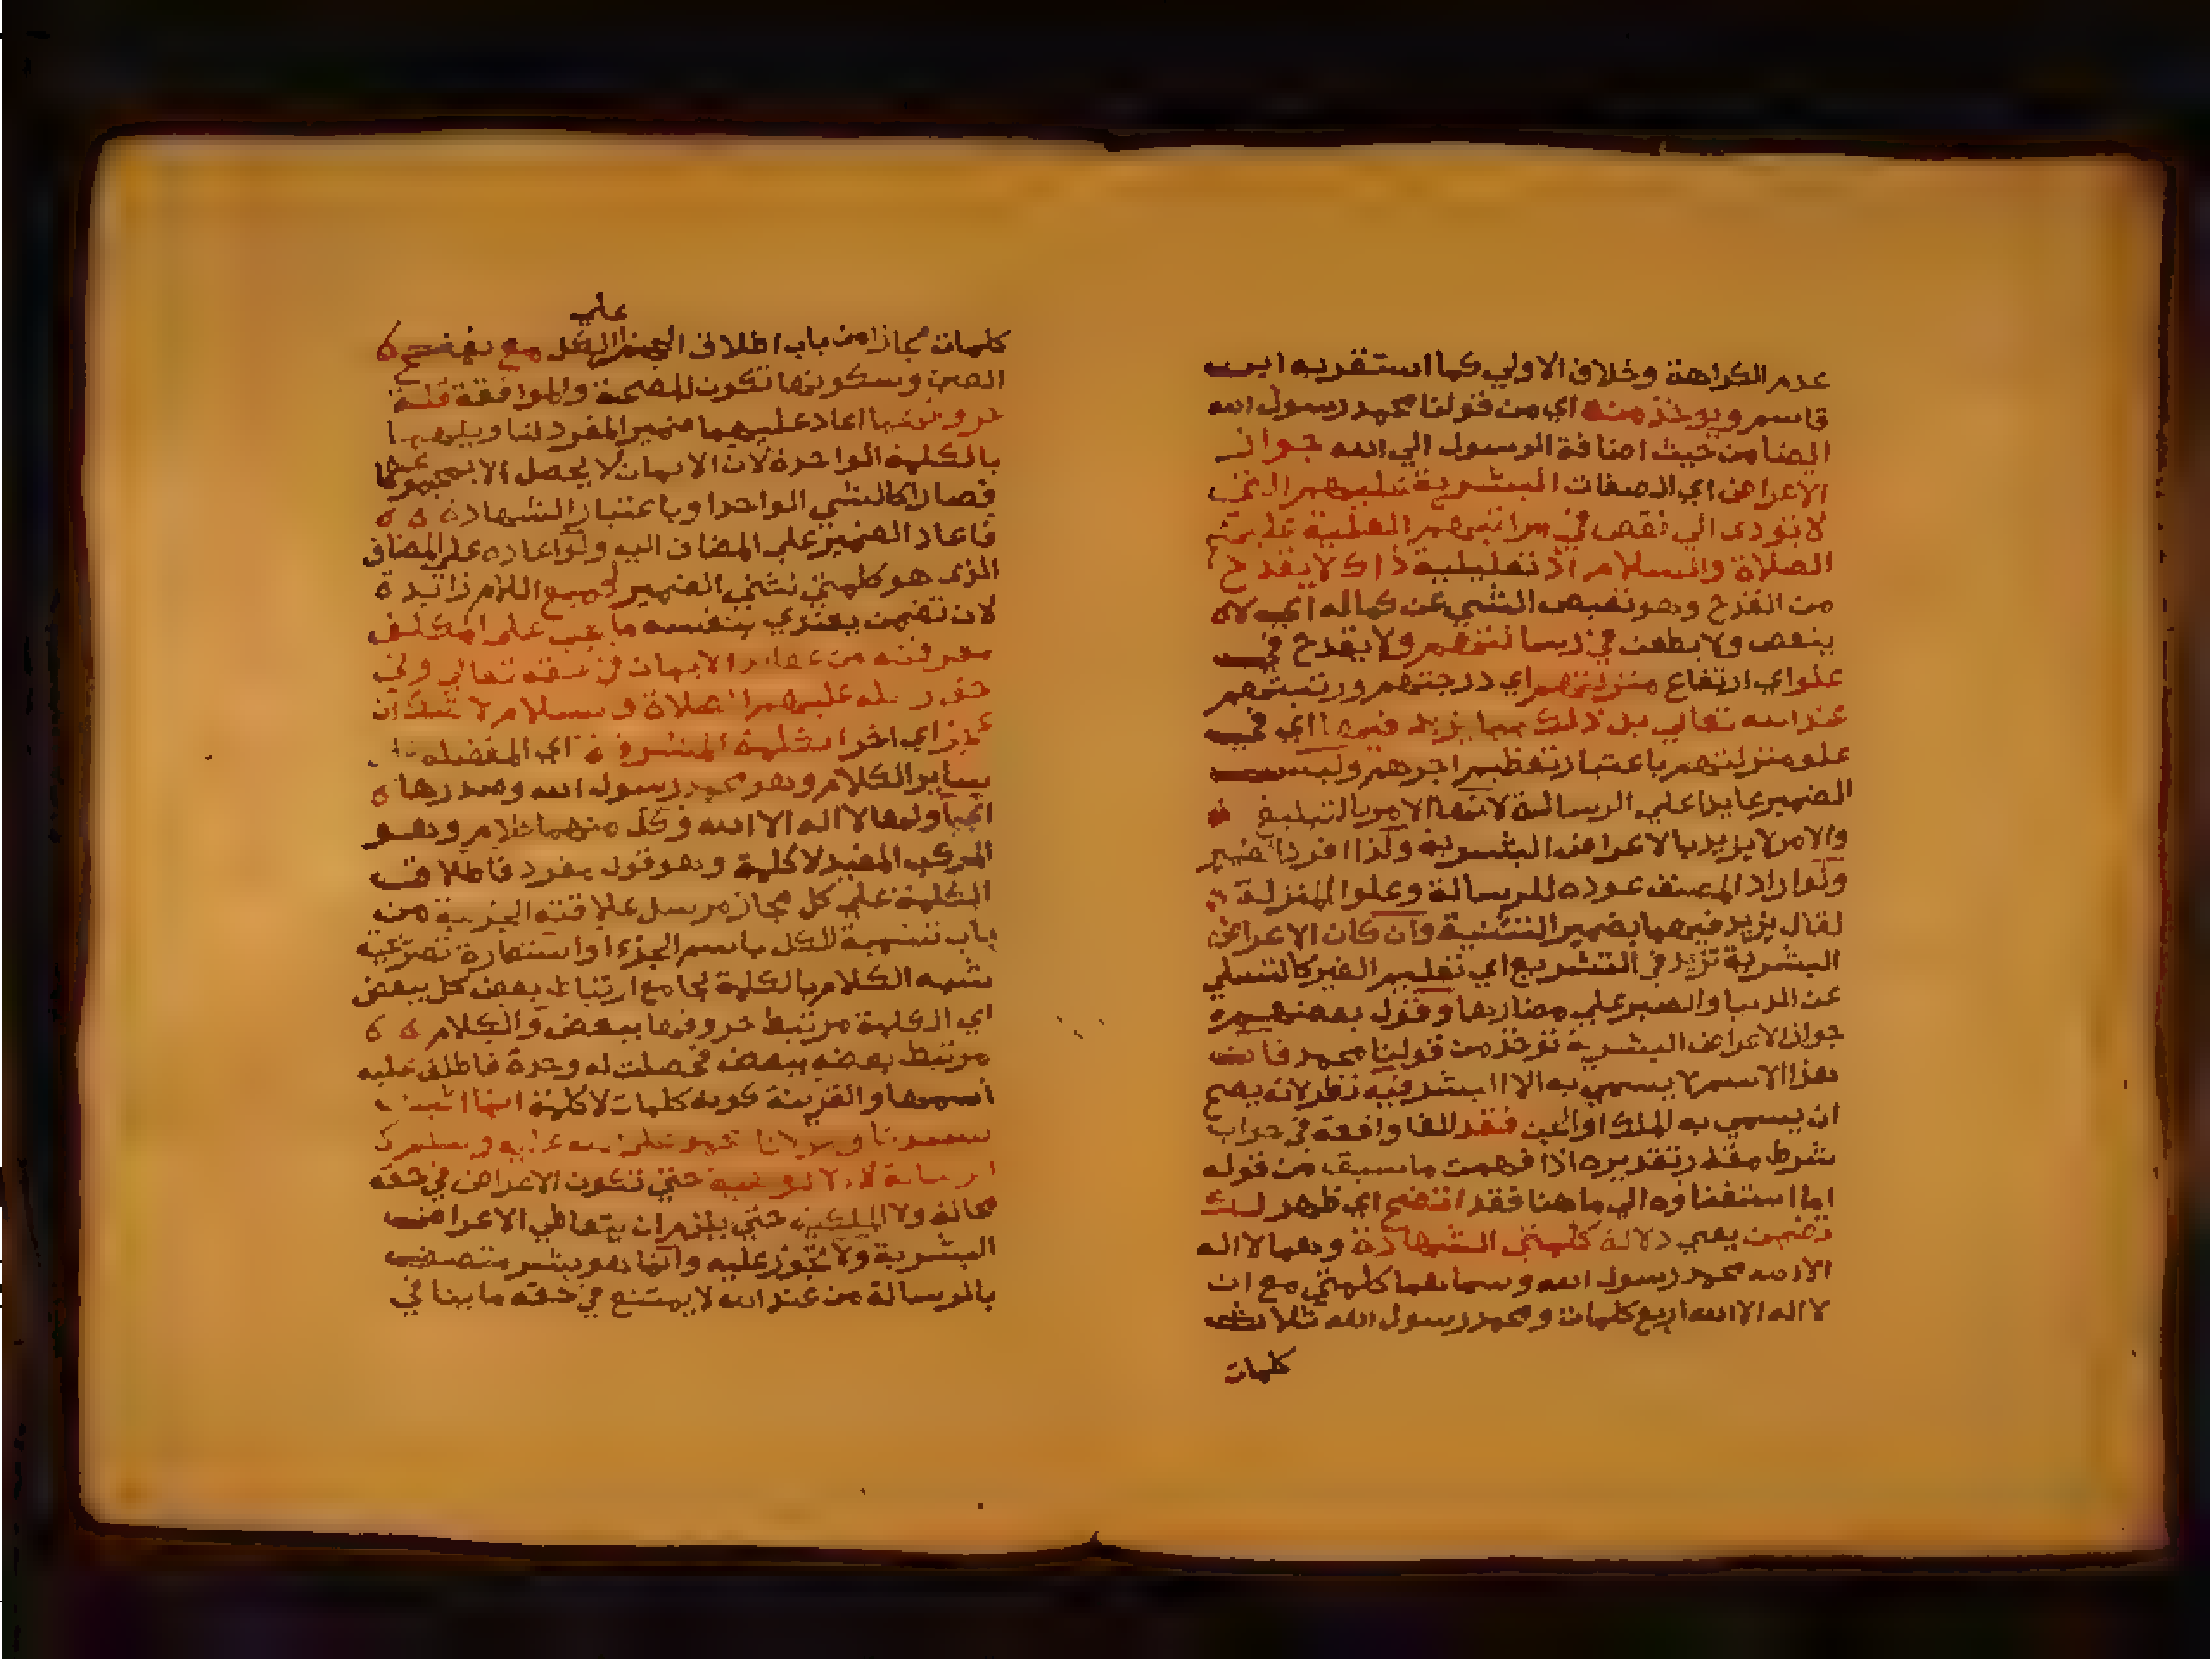 عدم الكراهة وخلاف الاولي كما استقربه ابن
قاسم ويوخذ منه اي من قولنا محمد رسول الله
ايضا من حيث اضافة الرسول الي الله جواز
الاعراض اي الصفات البشرية عليهم التي
لا تودي الي نقص في مراتبهم العلية عليهم
الصلاة والسلام اذ تعليلية ذاك لا يقدح
من القدح وهو نقيص الشي عن كماله اي لا
ينقص ولا يطعن في رسالتهم ولا يقدح في
علو اي ارتفاع منزلتهم اي درجتهم ورتبتهم
عند الله تعالي بل ذلك مما يزيد فيها اي في
علو منزلتهم باعتبار تعظيم اجرهم وليس
الضمير عايدا علي الرسالة لانها الامر بالتبليغ
والامر لا يزيد بالاعراض البشرية ولذا افرد الضمير
ولو اراد المصنف عوده للرسالة وعلو المنزلة
لقال يزيد فيهما بضمير التثنية وان كان الاعراض
البشرية تزيد في التشريع اي تعليم الغير كالتسلي
عن الدنيا والصبر علي مضارها وقول بعضهم
جواز الاعراض البشرية توخذ من قولنا محمد فان
هذا الاسم لا يسمي به الا البشر فيه نظر لانه يصح
ان يسمي به الملك او الجن فقد الفا واقعة في جواب
شرط مقدر تقديره اذا فهمت ما سبق من قوله
اما استغناوه الي ما هنا فقد اتضح اي ظهر لك
تضمن يعني دلالة كلمتي الشهادة وهما لا اله
الا الله محمد رسول الله وسماهما كلمتي مع ان
لا اله الا الله اربع كلمات ومحمد رسول الله ثلاث
كلمات
علي
كلمات مجازا من باب اطلاق الجزء الكل مع بفتح
العين وسكونها تكون للمصحبة والموافقة قلة
حروفها اعاد عليهما ضمير المفرد
بالكلمة الواحدة لان الايمان لا يحصل الا بمجموعهما
فصارا كالشي الواحد او باعتبار الشهادة
فاعاد الضمير علي المضاف اليه ولو اعاده علي المضاف
الذي هو كلمتي لثني الضمير لجميع اللام زائدة
لان تضمن يعتدي بنفسه ما يجب علي المكلف
معرفته من عقايد الايمان في حقه تعالي وفي
حق رسله عليهم الصلاة والسلام لا شك ان
عجز اي اخر الكلمة المشرفة اي المفضلة
بساير الكلام وهو محمد رسول الله وصدرها
اي اولها لا اله الا الله وكل منهما كلام وهو
المركب المفيد لا كلمة وهو قول مفرد فاطلاق
الكلمة علي كل مجاز مرسل علاقته الجزيية من
باب تسمية الكل باسم الجزء او استعارة تصريحية
شبه الكلام بالكلمة بجامع ارتباط بعض كل ببعض
اي الكلمة مرتبط حروفها ببعض والكلام
مرتبط بعضه ببعض فحصلت له وحدة فاطلق عليه
اسمها والقرينة كونه كلمات لا كلمة انما اثبت
لسيدنا ومولانا محمد صلي الله عليه وسلم
الرسالة لا الالوهية حتي تكون الاعراض في حقه
محالة ولا الملكية حتي يلزم ان يتعاطي الاعراض
البشرية ولا تجوز عليه وانما هو بشر متصف
بالرسالة من عند الله لا يمتنع في حقه ما ينافي